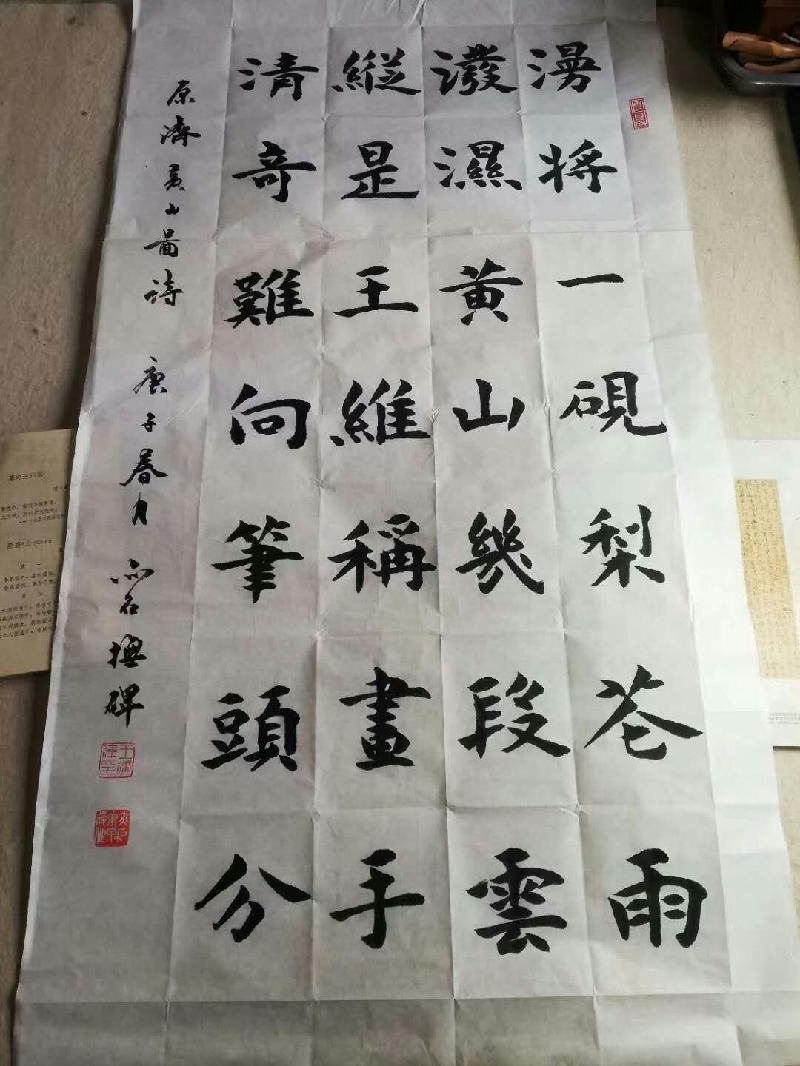 漫将一硯梨花雨
潑濕黄山幾段雲
縱是王維稱畫手
清奇難向筆頭分
原濟黄山圖詩 庚子春月 亦石撫碑